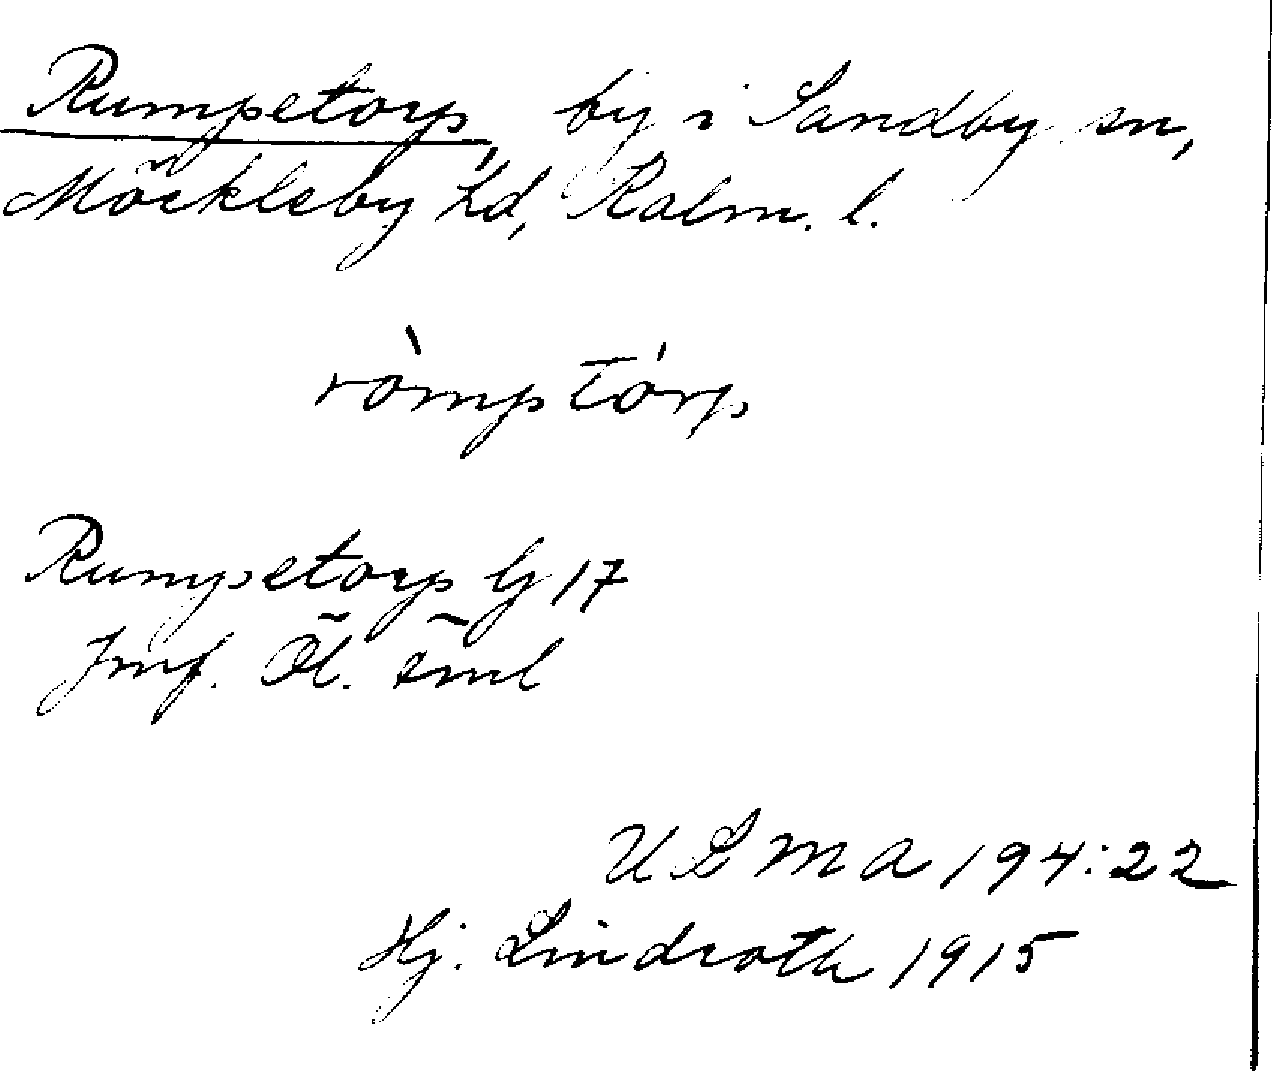 Rumpetorp, by i Sandby sn,
Möckleby hd, Kalm. l.
ròmptórp
Rumpetorp G 17
Jmf. Öl.
ULMA 194:22
Hj. Lindroth 1915